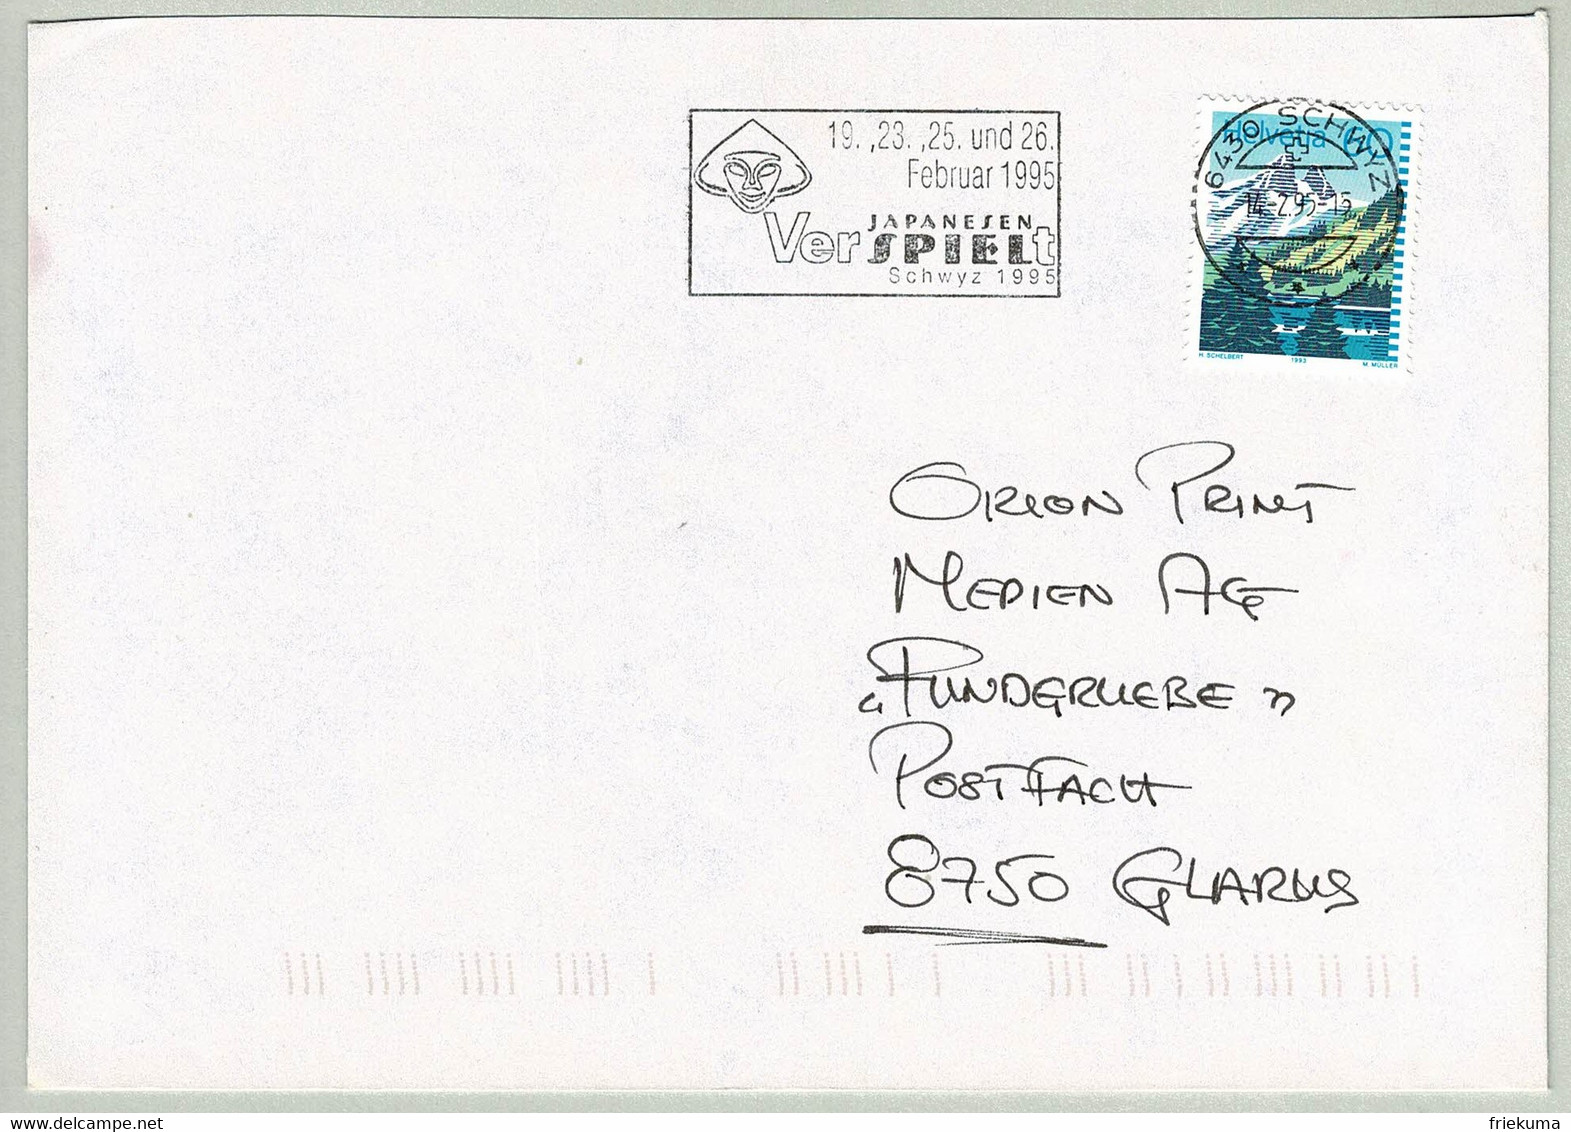 19. ,23. ,25. und 26.
Februar 1995
JAPANESEN
VerSPIELt
Schwyz 1995
6430 SCHWYZ
14-2.95-15
Helvetia 60
H. SCHELBERT 1993 M. MÜLLER
ORION PRINT
MEDIEN AG
"FUNDGRUEBE"
POSTFACH
8750 GLARUS
www.delcampe.net
friekuma